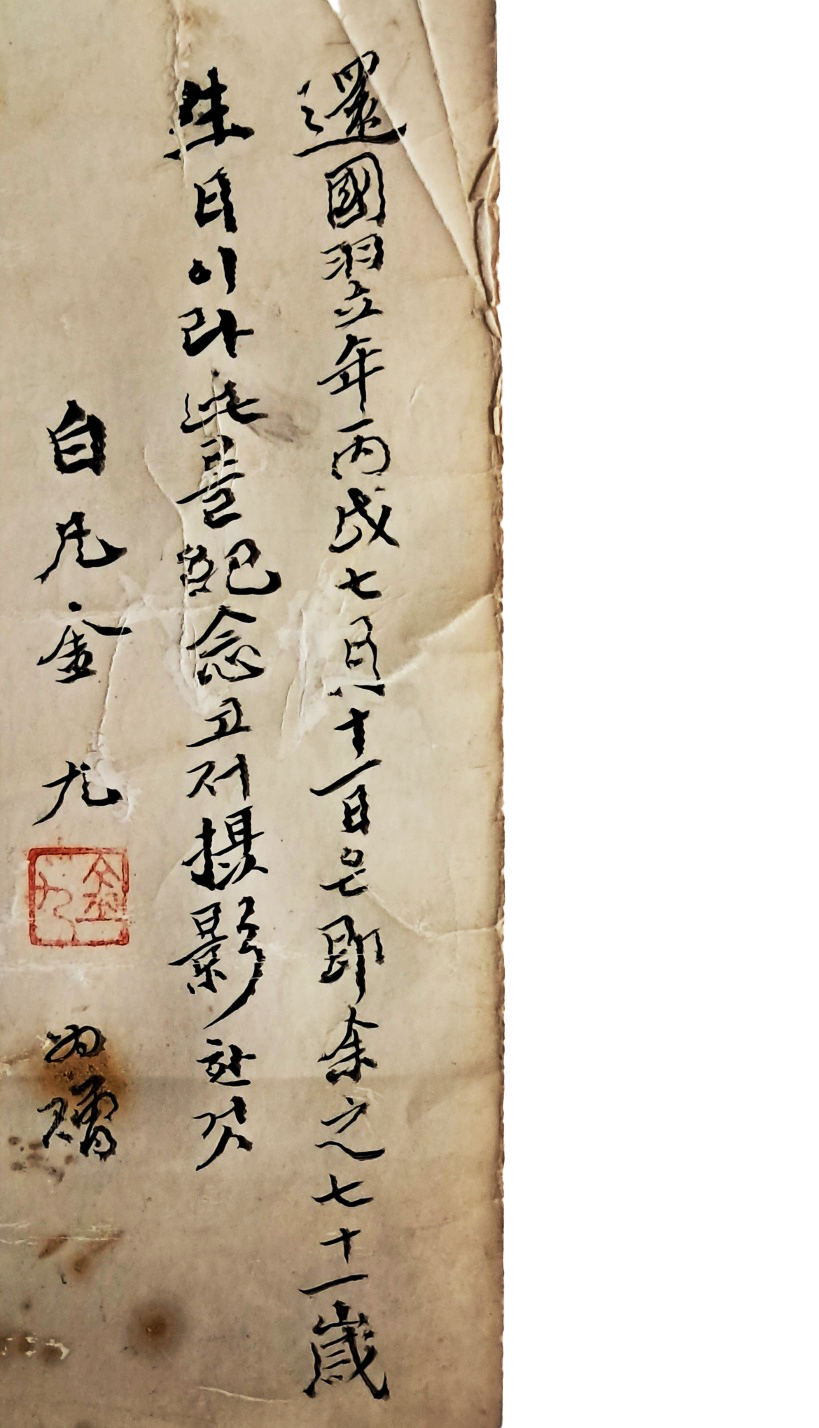 還國翌年丙戌七月十一日은即余之七十一歲
生日이라此를紀念고저攝影한것
白凡金九
金九
為贈